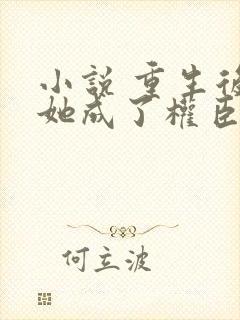 小說 重生後
她成了權臣
何立波